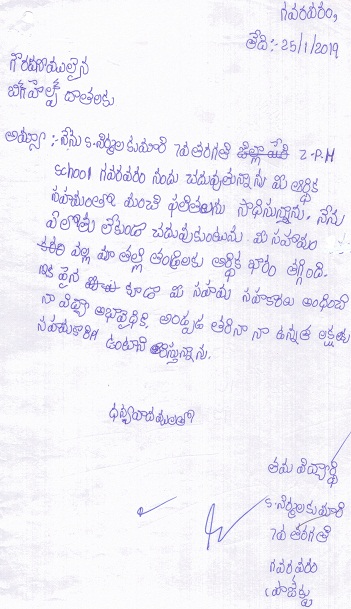 గవరవరం,
తేది:- 25/1/2019
గౌరవనీయులైన
బిగ్ హెల్ప్ దాతలకు
అమ్మా :- నేను S. నిర్మల కుమారి 7వ తరగతి జిల్లా Z.P.H
School గవరవరం నందు చదువుతున్నాను మీ ఆర్థిక
సహాయంతో మంచి ఫలితాలను సాధిస్తున్నాను. నేను
ఏ లోటు లేకుండా చదువుకుంటును మీ సహాయం
వల్ల మా తల్లి తండ్రులకు ఆర్థిక భారం తగ్గింది.
ఇక పైన కూడా మీ సహాయ సహకారాలు అందించి
నా విద్యా అభివృద్ధికి, అండ్రుప తరినా నా ఉన్నత లక్ష్యతు
సహయకారిగ ఉంటారని కోరుస్తున్నాను.
ధన్యవాదములతో
తమ విద్యార్థి
S. నిర్మల కుమారి
7వ తరగతి
గవరవరం